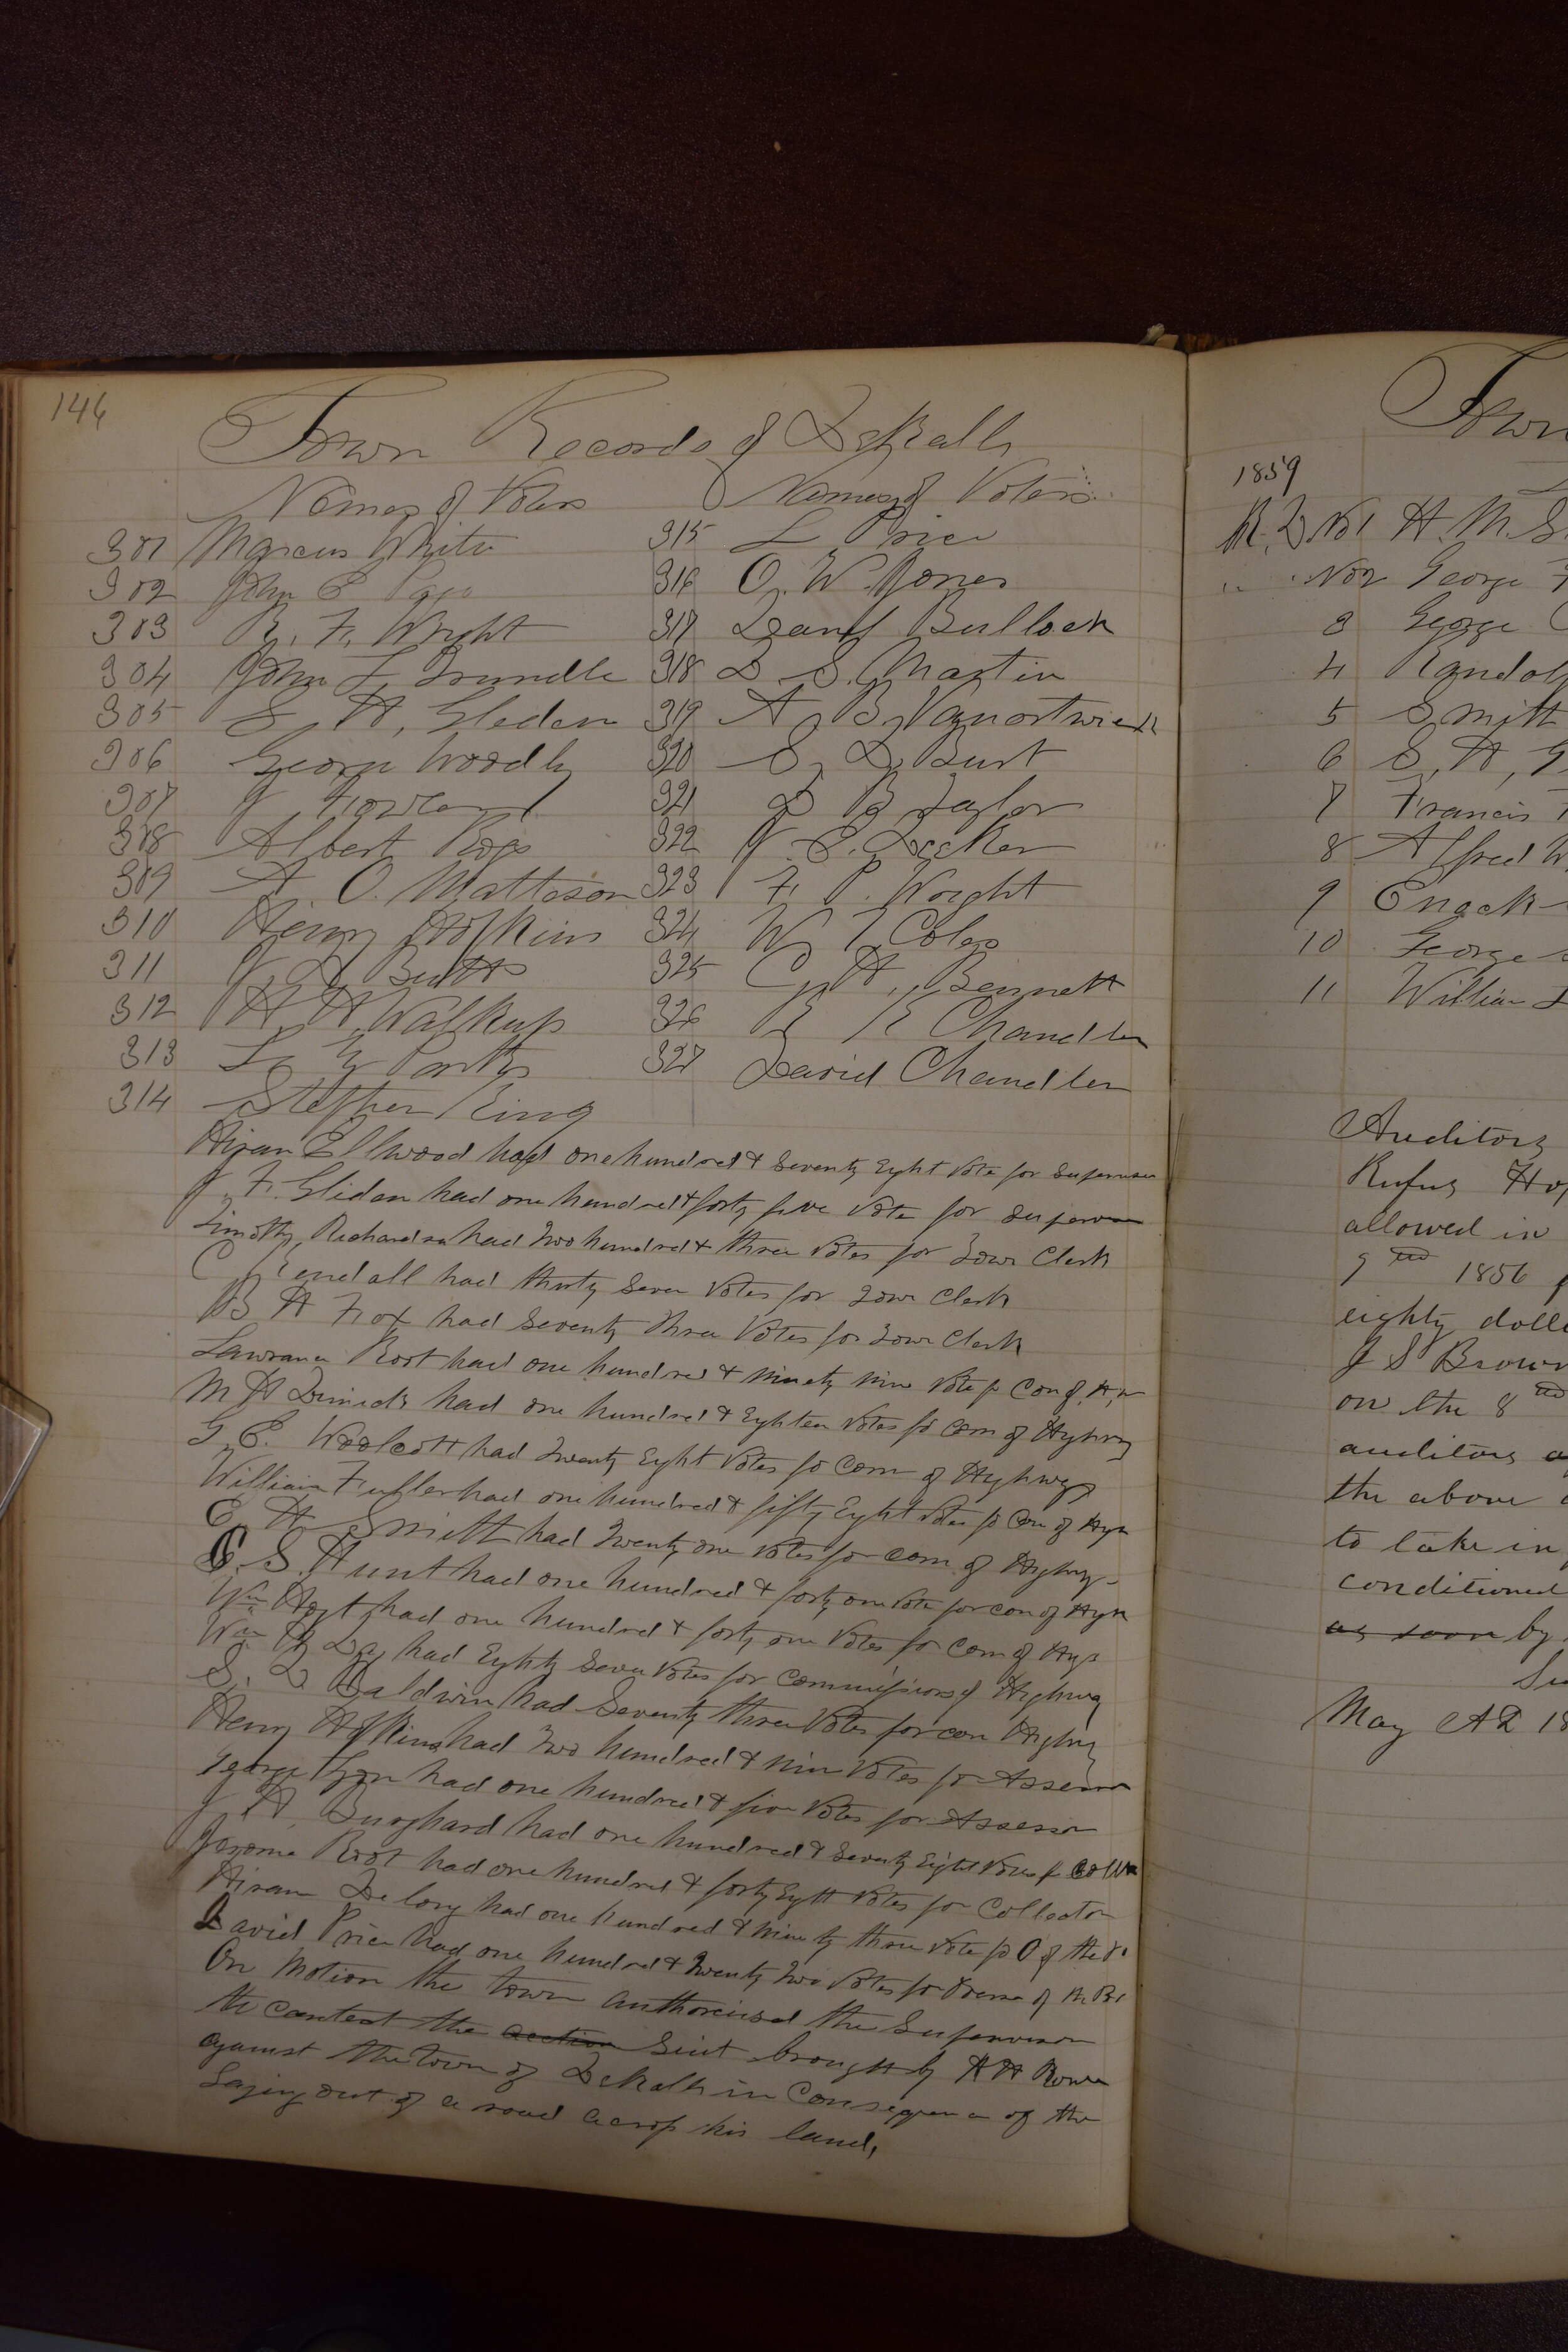 146
Town Records of DeKalb
Names of Voters
301 Marcus White
302 John E Page
303 B. F. Wright
304 John L. Trundle
305 S. H. Gleden
306 George Woodly
307 J. Fowler
308 Albert Rogs
309 A O. Matteson
310 Henry Hopkins
311 J. D. Butts
312 H H Walkup
313 L. Y.
314 Stephen King
Names of Voters
315 L Price
316 O. W. Jones
317 Bullock
318 D. S. Martin
319 A. B. Vanortwick
320 S. D. Burt
321 D B Taylor
322 J. E. Decker
323 F. P. Wright
324 W. T Coles
325 C. H. Bennett
326 R K Chandler
327 David Chandler
Hiram Ellwood had one hundred & Seventy Eight Vote for Supervisor
J. F. Glidon had one hundred & forty five Vote for Supervisor
Timothy Richardson had Two hundred & three Votes for Town Clerk
C Kendall had thirty Seven Votes for Town Clerk
B H Fox had Seventy three Votes for Town Clerk
Lawrance Root had one hundred & Ninety Nine Vote fo Com of H,w
M D had one hundred & Eighteen Votes fo Com of Hyhwy
G. E. Woolcott had Twenty Eight Votes fo Com of Highway
William Fuller had one hundred & fifty Eight Votes fo Com of Hyw
E. H Smith had Twenty one Votes for Com. of Hyhwy
E. S. Hunt had one hundred & forty one Vote for Com of Hyw
Wm Hoyt had one hundred & forty one Votes for Com of Hyw
Wm Day had Eighty Seven Votes for Commissioners of Highway
S. D Baldwin had Seventy three Votes for com Highwy
Henry Hopkins had Two hundred & Nine Votes for Assessor
George had one hundred & five Votes for Assessor
J H. Burghard had one hundred & Seventy Eight Votes fo Coll
Jerome Root had one hundred & forty Eight Votes for Collector
Hiram Delong had one hundred & Ninety three Vote fo O of the P.
David Price had one hundred & Twenty Two Votes for of the
On Motion the town authoreised the Supervisor
to contest the action Suit brought by H H Rowe
against the Town of DeKalb in Consequence of the
Laying out of a road across his land,
Town
1859
R. D No1 H. M. S
" " No2 George F
3 George C
4 Randol
5 Smith
6 S. H. G
7 Francis
8 Alfred W
9 Enack
10 George
11 William L
Auditors
Rufus Hop
allowed in
1856
eighty dolla
J S Brown
on the 8
auditors
the above
to take in
conditioned
as soon by
May AD 18